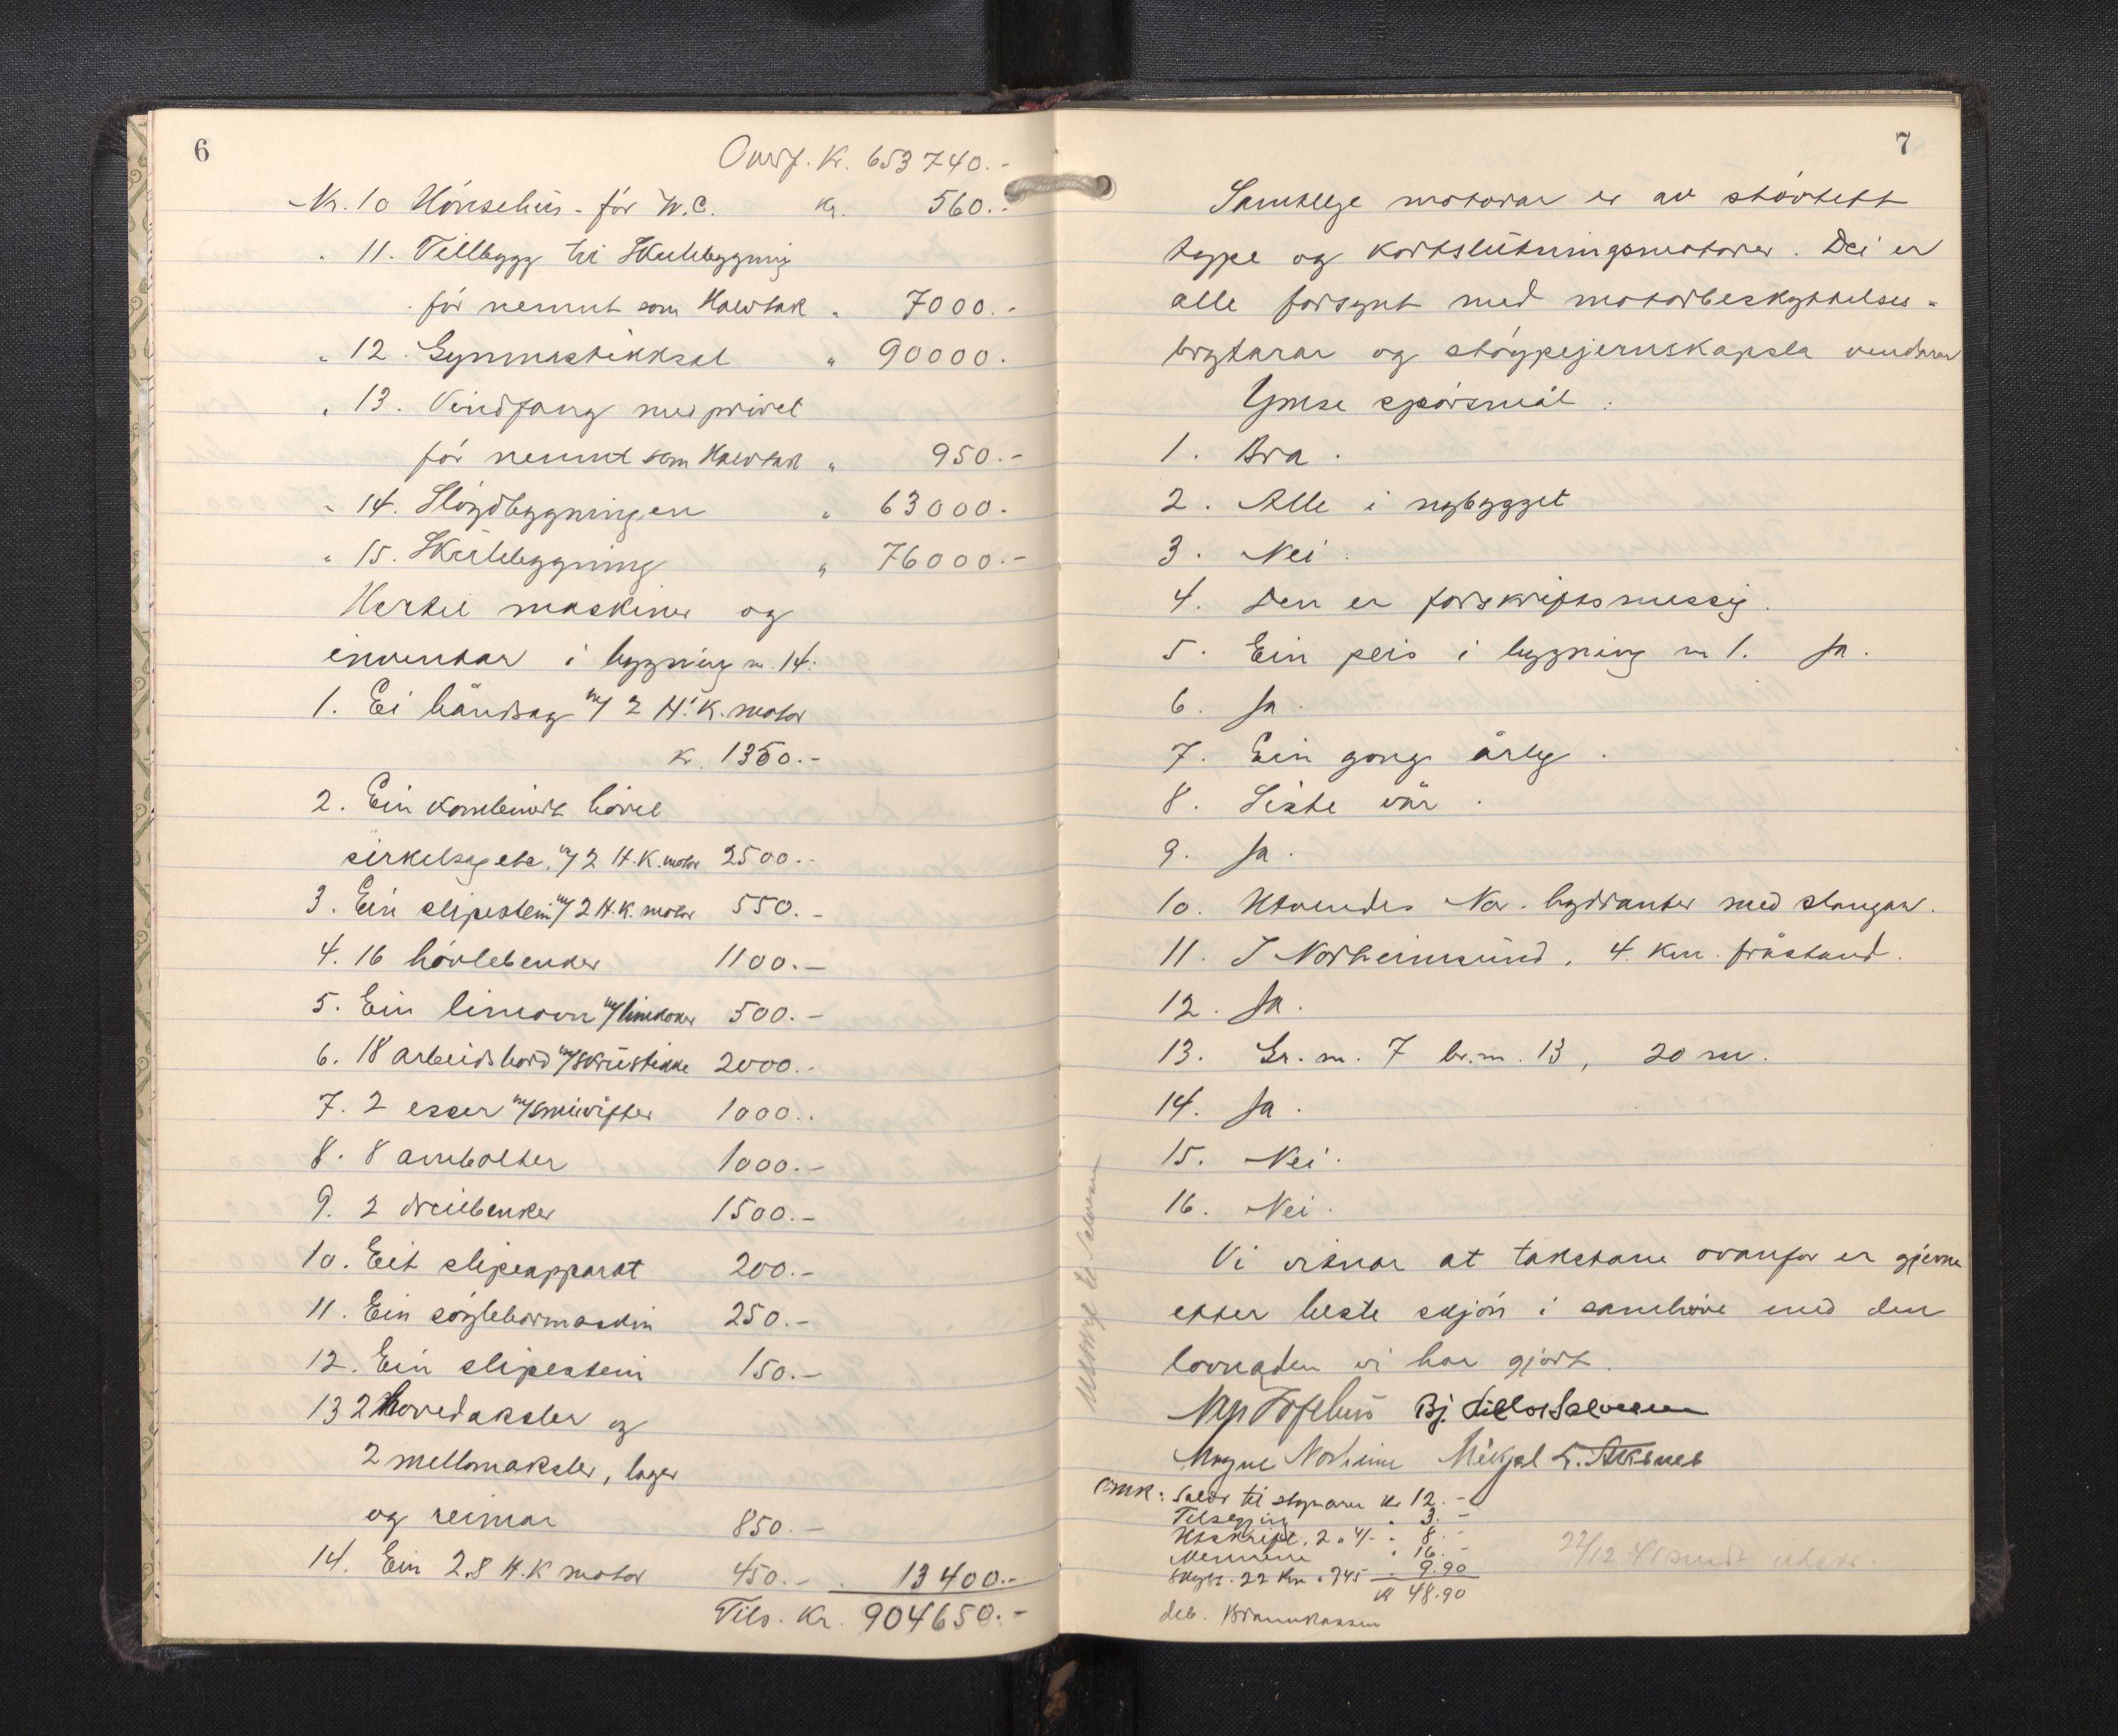 6
Overf. Kr. 653740.-
Nr. 10 Hönsehus - för W.C. Kr. 560.-
" 11. Tillbygg til Skulebygning
för nemnt som Halvtak " 7000.-
" 12. Gymnastikksal " 90000.-
" 13. Vindfang med privet
för nemnt som Halvtak " 950.-
" 14. Slöydbygningen " 63000.-
" 15. Skulebygning " 76000.-
Hertil maskiner og
inventar i bygning nr. 14:
1. Ei bandsag m/ 2 H.K. motor
kr. 1350.-
2. Ein kombinert hövel
sirkelsag etc. m/ 2 H.K. motor 2500.-
3. Ein slipestein m/ 2 H.K. motor 550.-
4. 16 hövlebenker 1100.-
5. Ein limovn m/ limkoker 500.-
6. 18 arbeidsbord m/ skrustikke 2000.-
7. 2 esser m/ smivifter 1000.-
8. 8 ambolter 1000.-
9. 2 dreiebenker 1500.-
10. Eit slipeapparat 200.-
11. Ein söyleboremaskin 250.-
12. Ein slipestein 150.-
13 2 hovedaksler og
2 mellomaksler, lager
og reimar 850.-
14. Ein 2.8 H.K motor 450.- 13400.-
Tils. Kr. 904650.-
7
Samtlege motorar er av stövtett
type og kortslutningsmotorer. Dei er
alle forsynt med motorbeskyttelses-
brytarar og stöypejernskapsla vendarar
Ymse spörsmål:
1. Bra.
2. Alle i nybygget
3. Nei.
4. Den er forskriftsmessig.
5. Ein peis i bygning nr 1. Ja.
6. Ja.
7. Ein gong årleg.
8. Siste vår.
9. Ja.
10. Utvendes No. hydranter med slangar.
11. I Norheimsund, 4. km. fråstand.
12. Ja.
13. Gr. nr. 7 br.nr. 13, 20 m.
14. Ja.
15. Nei.
16. Nei.
Vi vitnar at takstane ovanfor er gjevne
etter beste skjön i samhöve med den
lovnaden vi har gjort.
Nils Tofthus Bj.
Magne Norheim Mikjel
Omk: Salær til styraren kr 12.-
Tilsegjing " 3.-
Utskrift, 2 a 4/- " 8.-
Mennene " 16.-
Skyss. 22 km a 045 " 9.90
kr 48.90
deb. Brannkassen
22/12 41 sendt utskr.